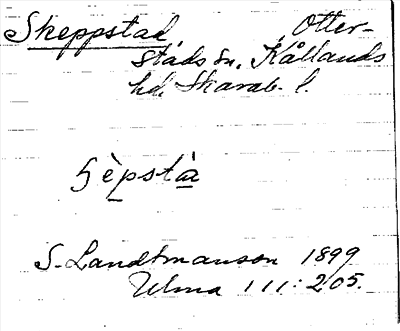 Skeppstad, Otter-
stads sn. Kållands
hd. Skarab. l.
ʃèpsta
S. Landtmanson 1899
Ulma 111:205.